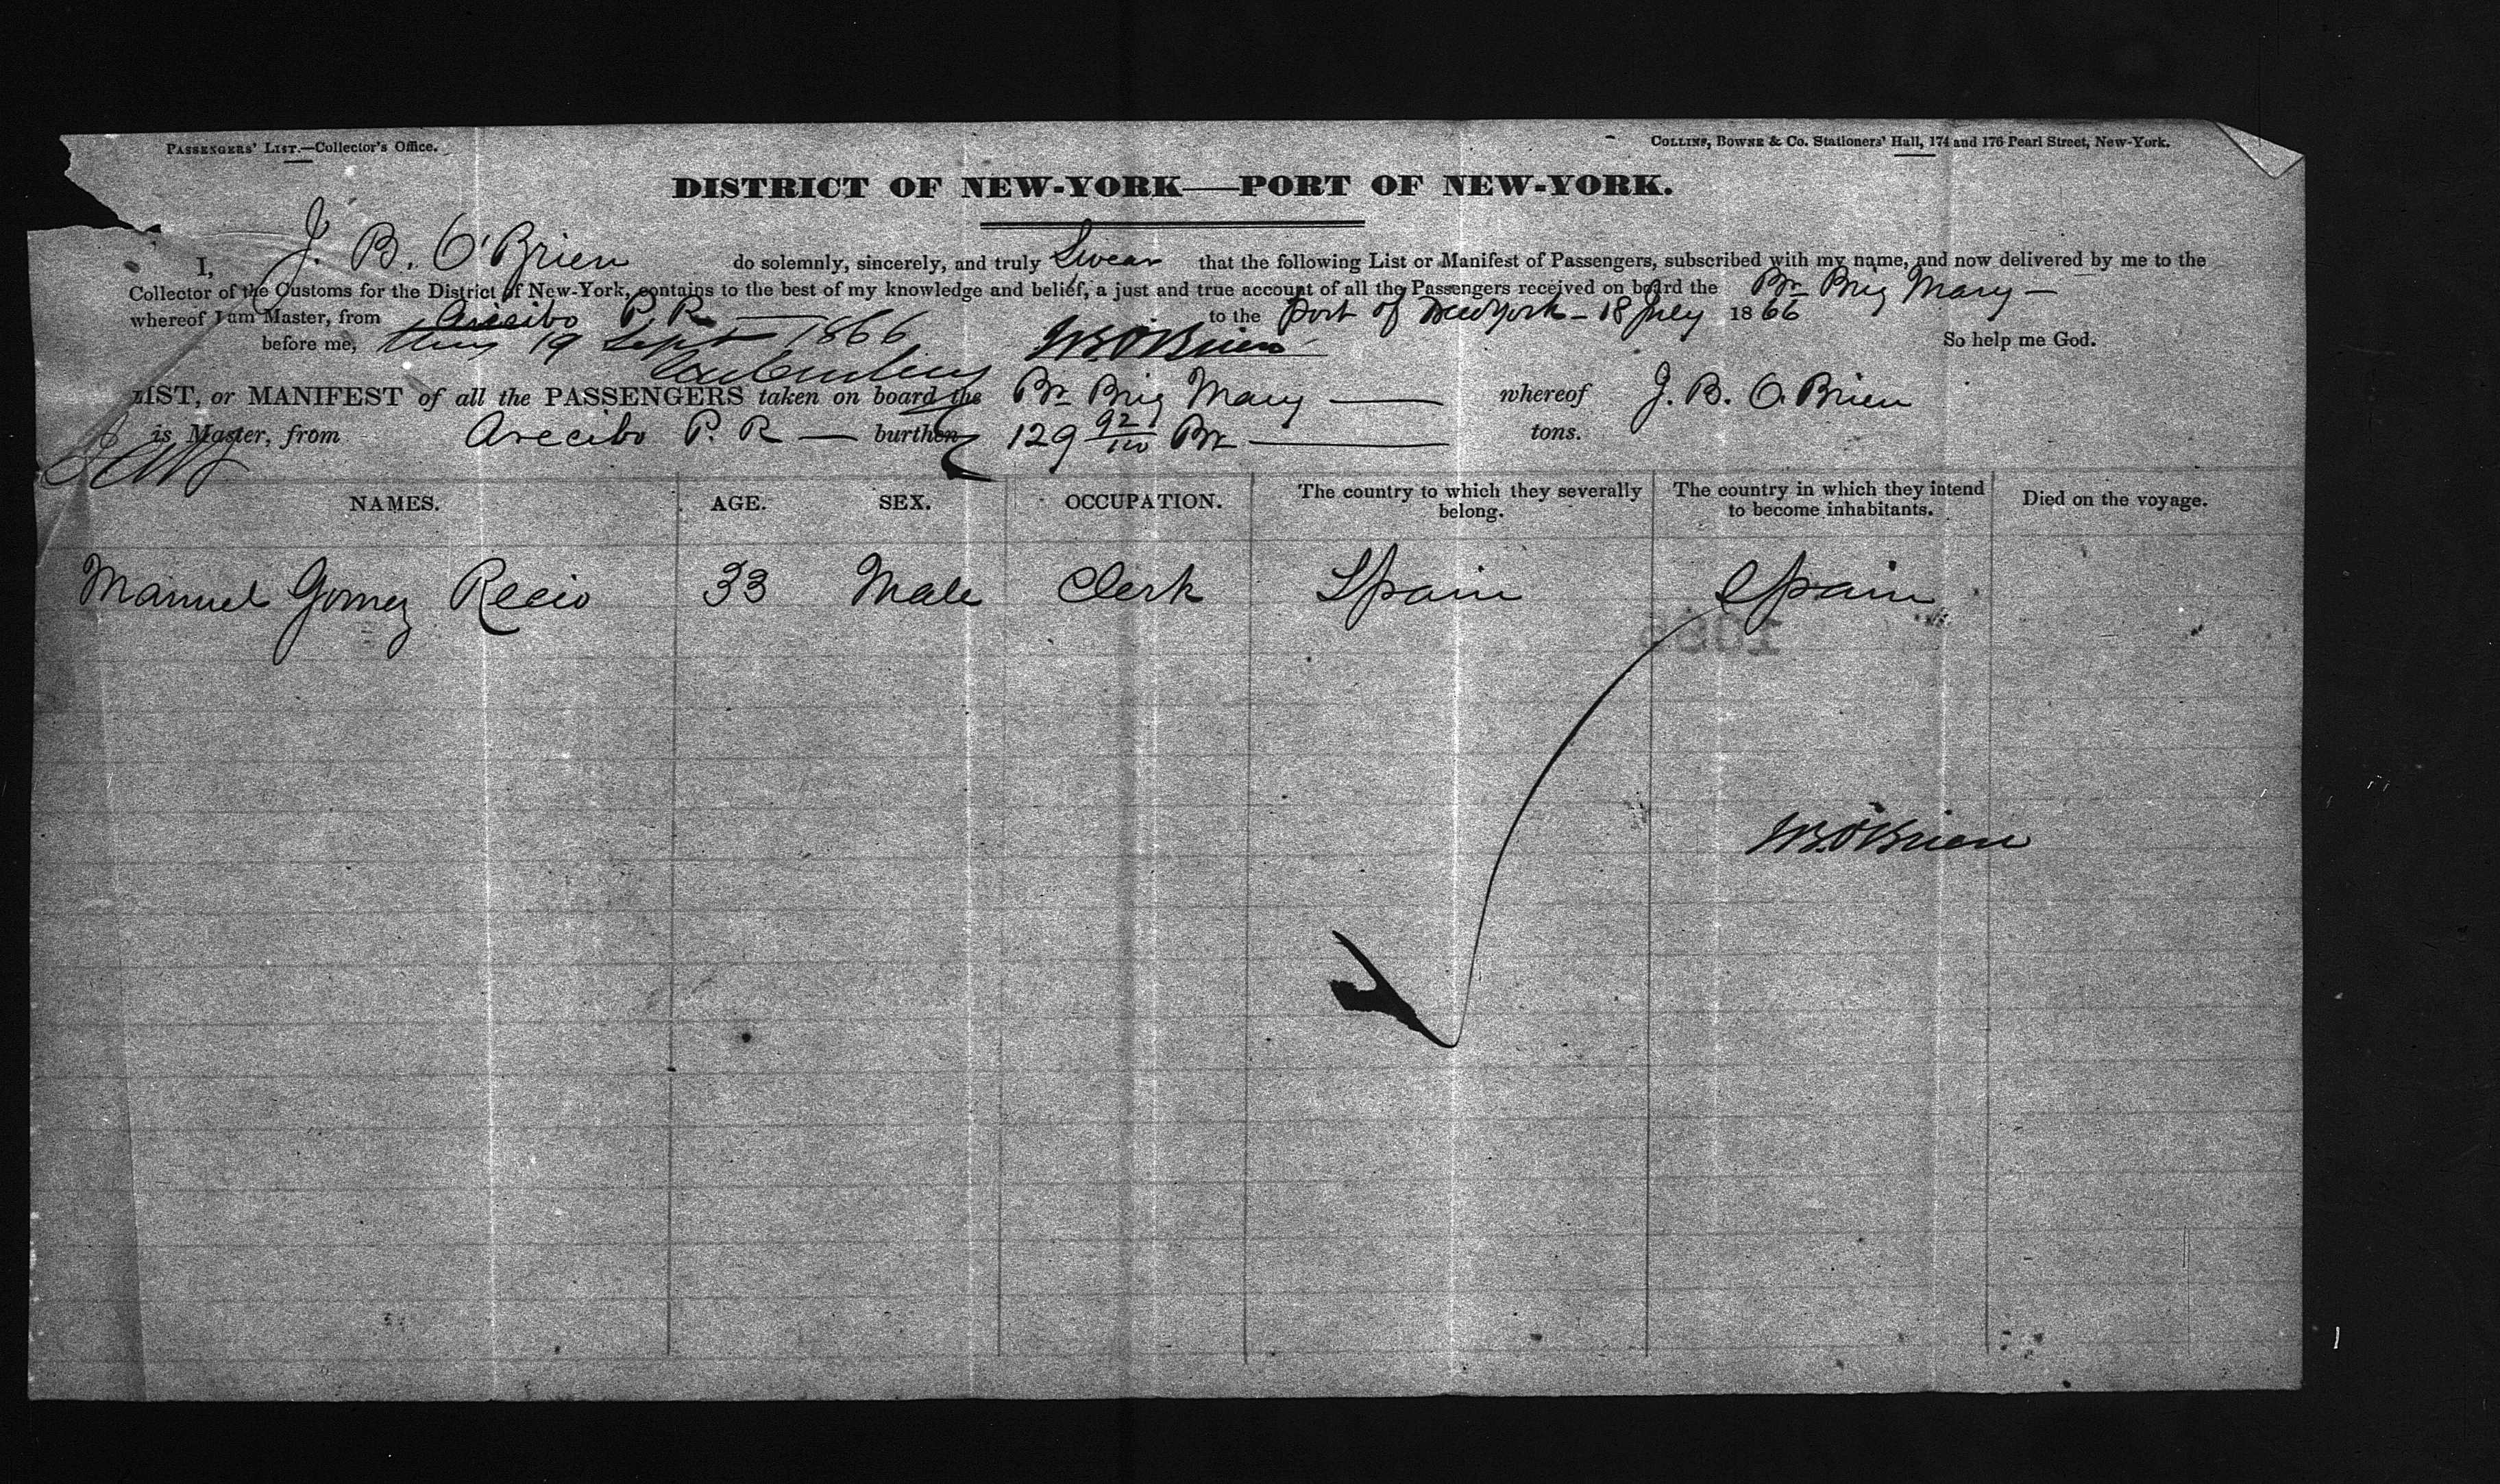 PASSENGERS' LIST.—Collector's Office.
COLLINS, BOWNE & Co. Stationers' Hall, 174 and 176 Pearl Street, New-York.
DISTRICT OF NEW-YORK—PORT OF NEW-YORK.
I, J. B. O'Brien do solemnly, sincerely, and truly Swear that the following List or Manifest of Passengers, subscribed with my name, and now delivered by me to the
Collector of the Customs for the District of New-York, contains to the best of my knowledge and belief, a just and true account of all the Passengers received on board the Br Brig Mary —
whereof I am Master, from Arecibo P. R — to the Port of New York – 18 July 1866
before me, this 19 Sept 1866 J B. O'Brien So help me God.
LIST, or MANIFEST of all the PASSENGERS taken on board the Br Brig Mary — whereof J. B. O. Brien
is Master, from Arecibo P. R — burthen 129 92/100 Br — tons.
NAMES. AGE. SEX. OCCUPATION. The country to which they severally belong. The country in which they intend to become inhabitants. Died on the voyage.
Manuel Gomez Recio 33 Male Clerk Spain Spain
J B. O'Brien